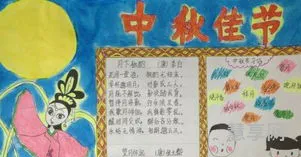 中秋佳节
月下独酌 (唐) 李白
花间一壶酒, 独酌无相亲。
举杯邀明月, 对影成三人。
月既不解饮, 影徒随我身。
暂伴月将影, 行乐须及春。
我歌月徘徊, 我舞影零乱。
醒时同交欢, 醉后各分散。
永结无情游, 相期邈云汉。
望月怀远 (唐) 张九龄
中秋节习俗